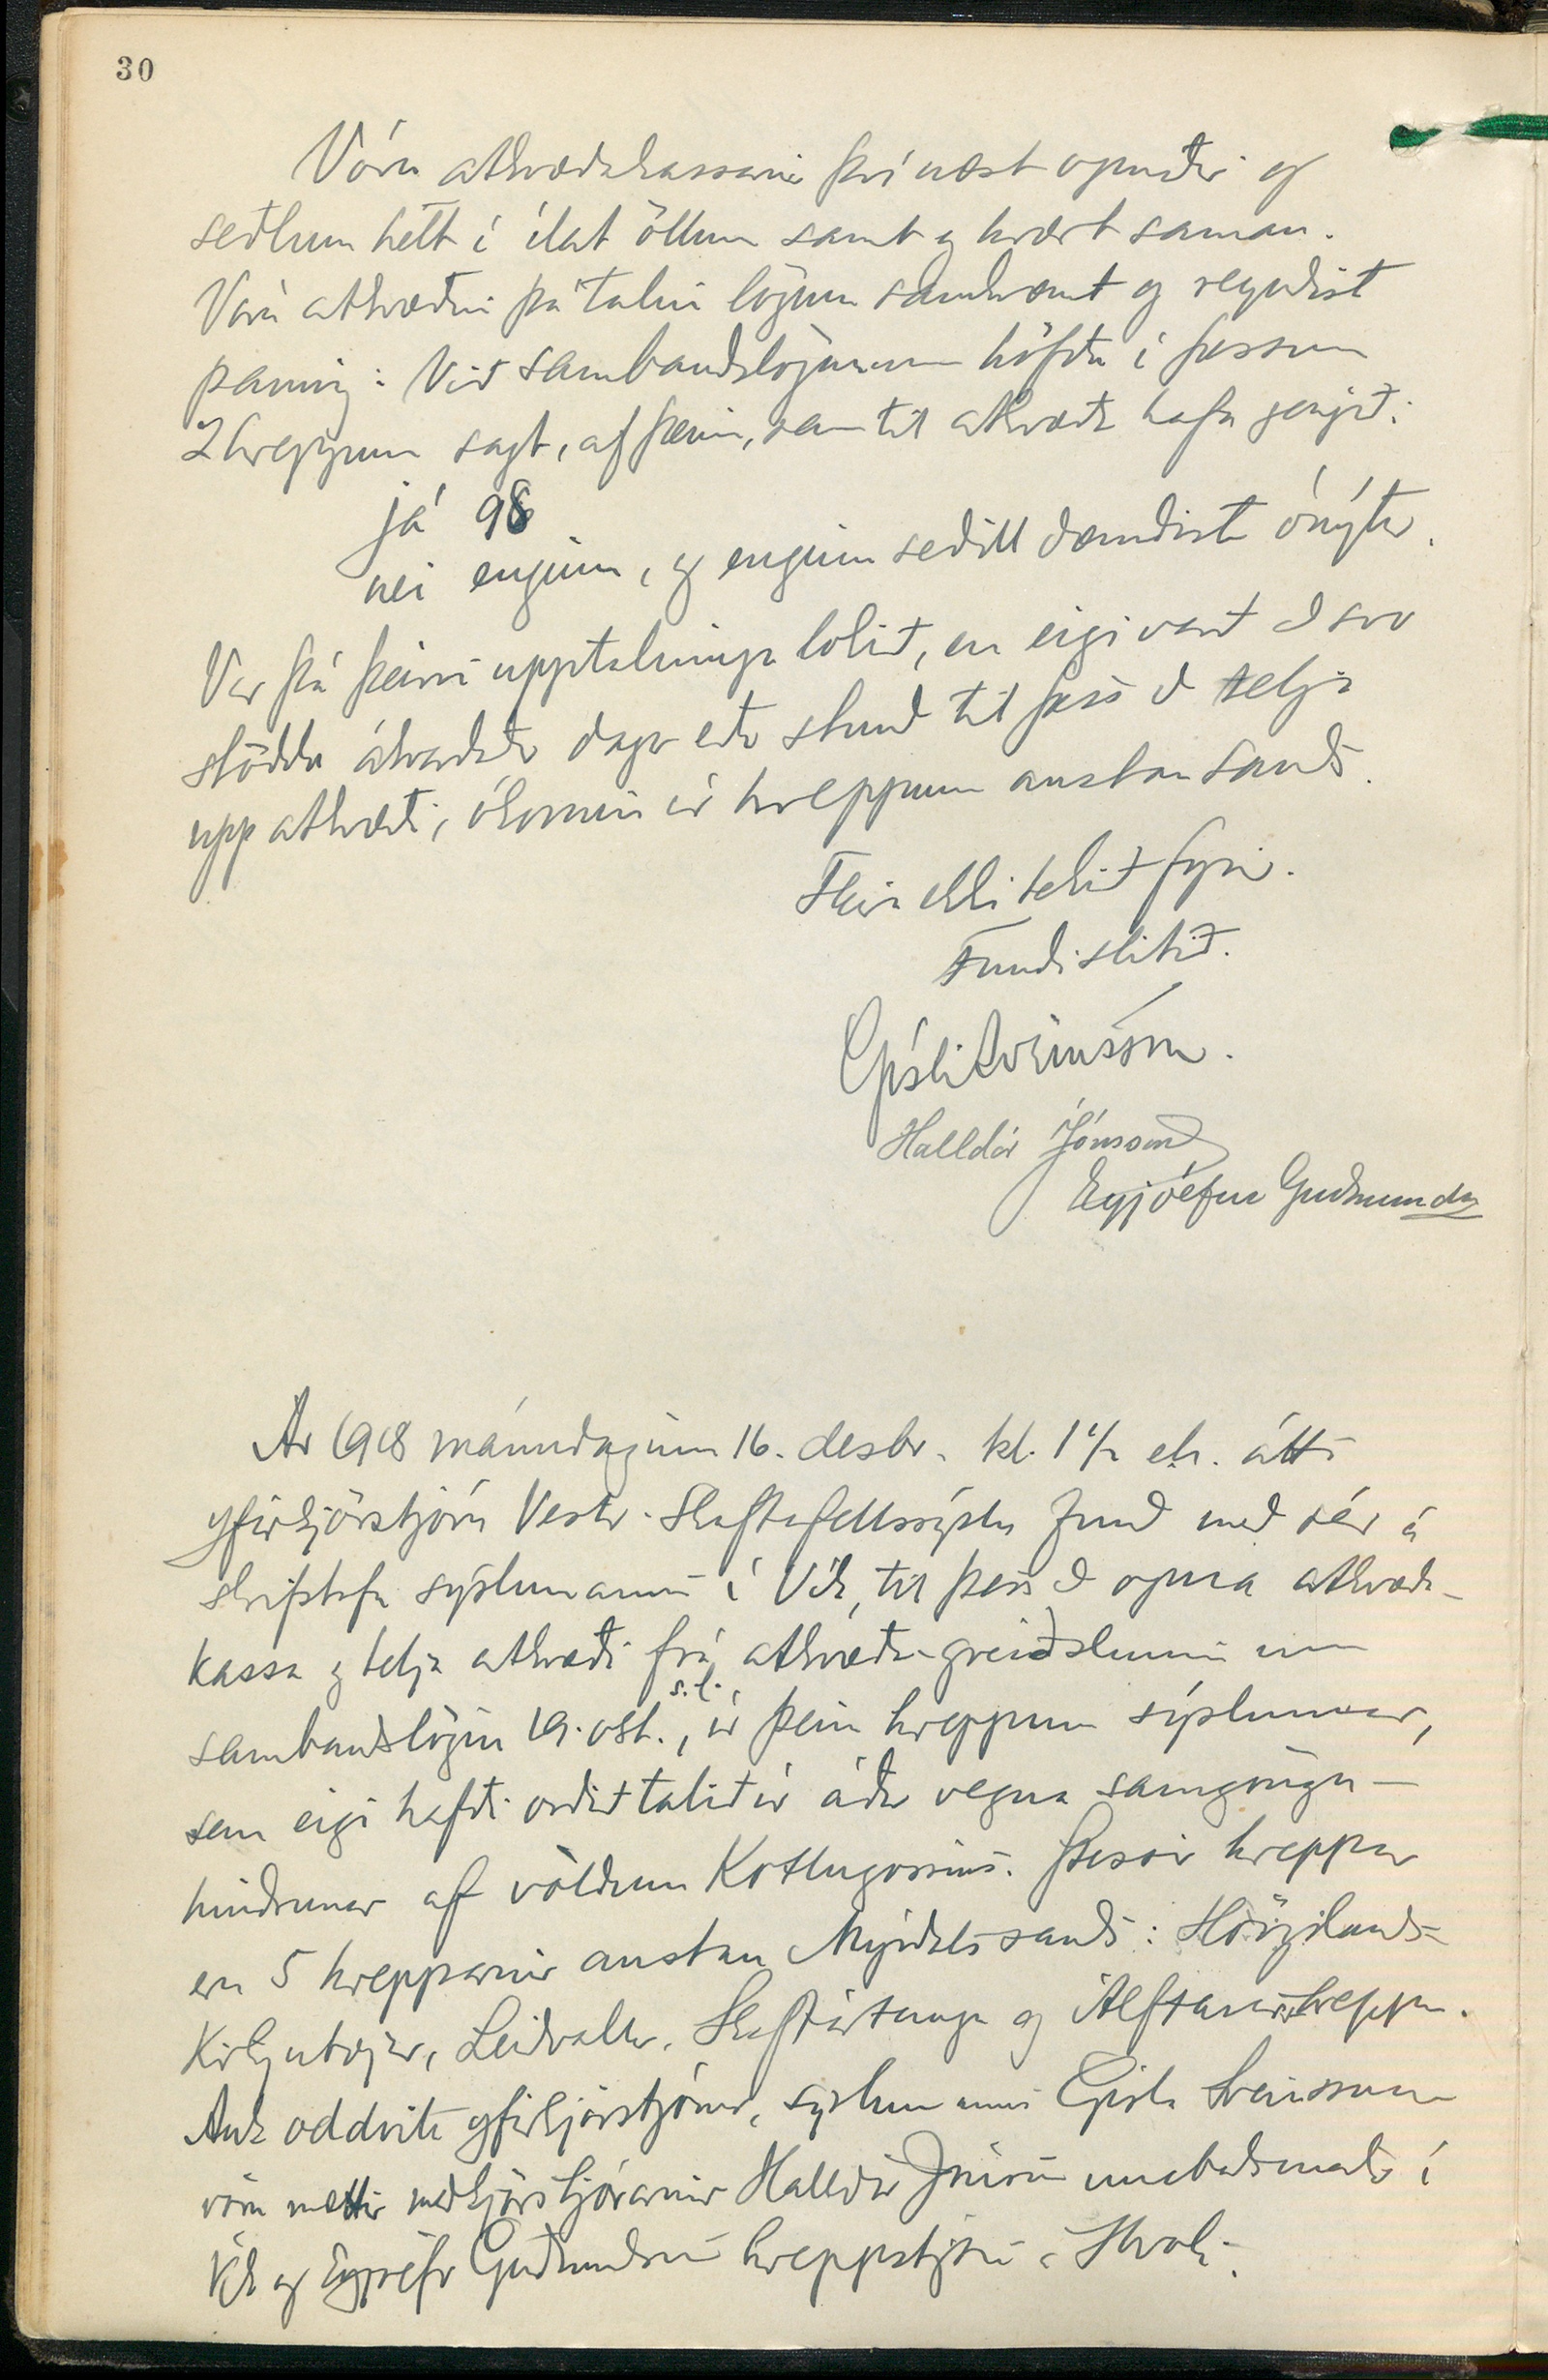 30
Vóru atkvæðakassarnir því næst opnaðir og
seðlum hellt í ílát öllum samt og hrært saman.
Vóru atkvæðin þá talin lögum samkvæmt og reyndist
þannig: Við sambandslögunum höfðu í þessum
2 hreppum sagt, af þeim, sem til atkvæða hafa gengið:
já 98
nei enginn, og enginn seðill dæmdist ónýtur.
Var þá þeirri upptalningu lokið, en eigi varð að svo
stöddu ákveðinn dagur eða stund til þess að telja
upp atkvæði, ókomin úr hreppum austan Sands.
Fleira ekki tekið fyrir.
Fundi slitið.
Gísli Sveinsson.
Halldór Jónsson
Eyjólfur Guðmundss
Ár 1918 mánudaginn 16. desbr. kl. 1 1/2 eh. átti
yfirkjörstjórn Vestur-Skaftafellssýslu fund með sér á
skrifstofu sýslumanns í Vík, til þess að opna atkvæða-
kassa og telja atkvæði frá atkvæðagreiðslunni um
sambandslögin 19. okt. s.l., úr þeim hreppum sýslunnar,
sem eigi hafði orðið talið úr áður vegna samgöngu-
hindrunar af völdum Kötlugossins. Þessir hreppar
eru 5 hrepparnir austan Mýrdalssands: Hörgslands-
Kirkjubæjar, Leiðvallar, Skaftártungu og Álftavershreppur.
Auk oddvita yfirkjörstjórnar, sýslumanns Gísla Sveinssonar
vóru mættir meðkjörstjórarnir Halldór Jónsson umboðsmaður í
Vík og Eyjólfur Guðmundsson hreppstjóri á Hvoli.